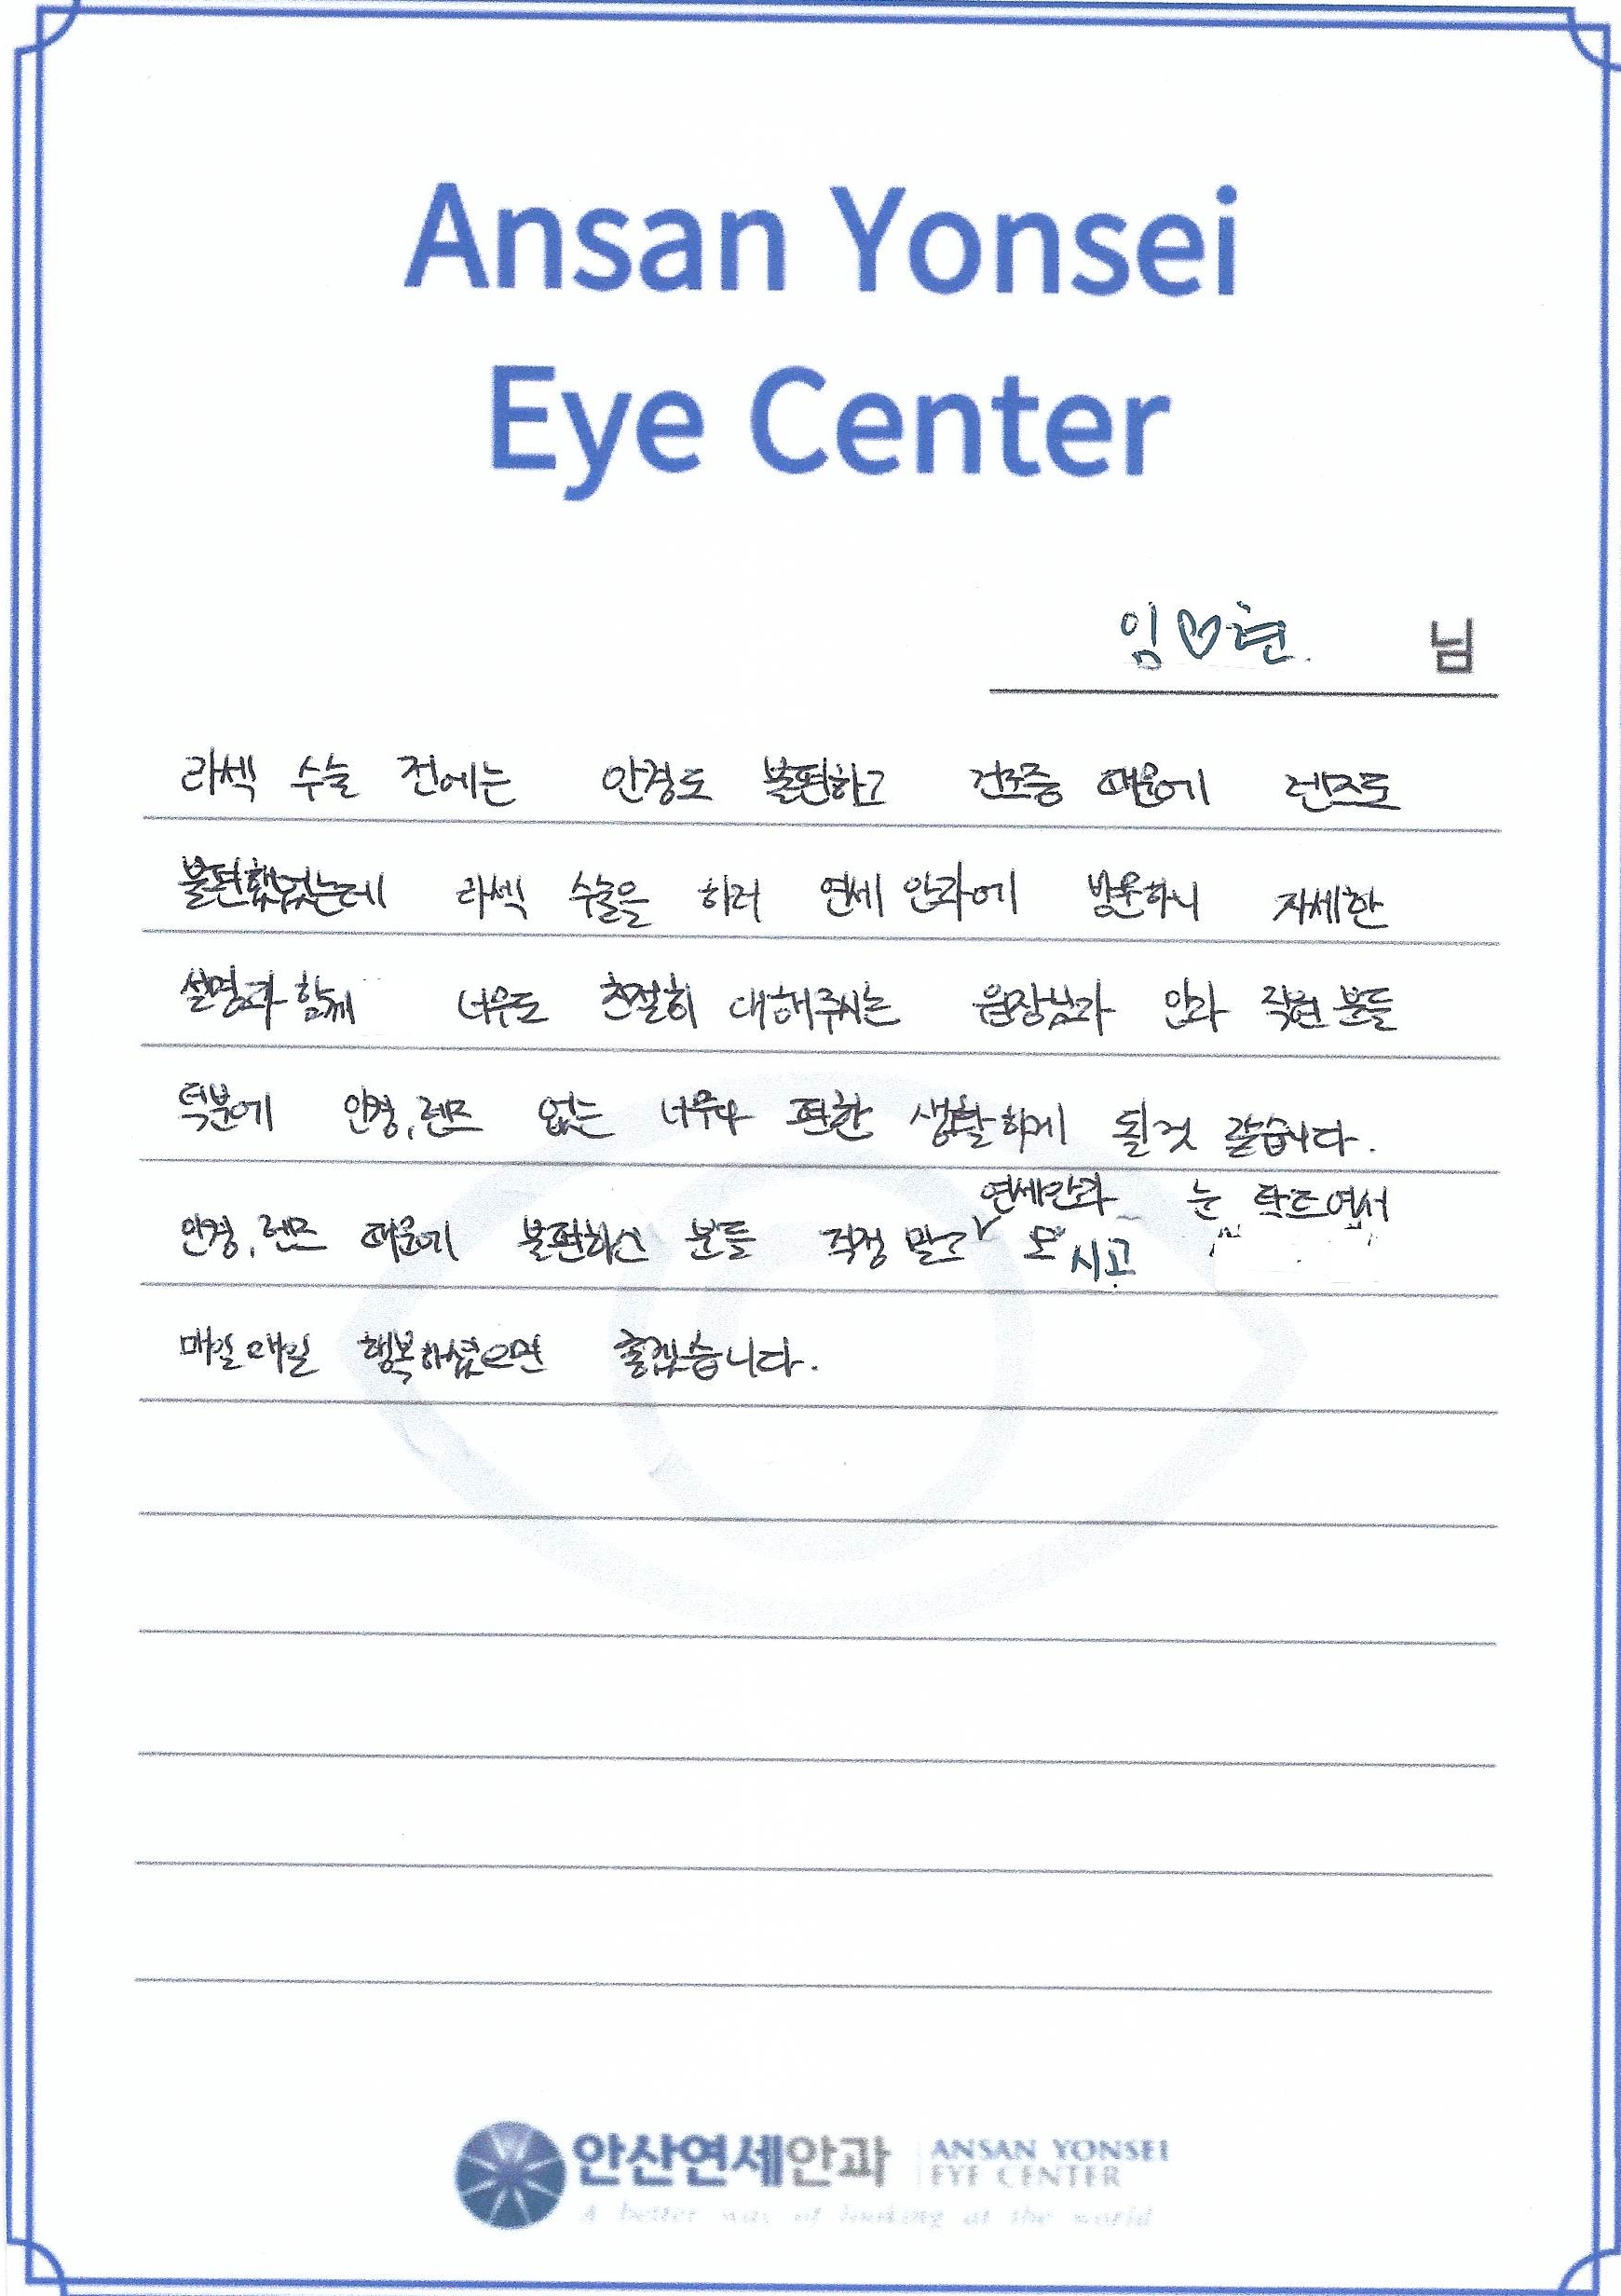 Ansan Yonsei
Eye Center
임♡현. 님
라섹 수술 전에는 안경도 불편하고 건조증 때문에 렌즈도
불편했었는데 라섹 수술을 하러 연세 안과에 방문하니 자세한
설명과 함께 너무도 친절히 대해주시는 원장님과 안과 직원 분들
덕분에 안경, 렌즈 없는 너무나 편한 생활하게 될것 같습니다.
연세안과 눈
안경, 렌즈 때문에 불편하신 분들 걱정 말고 오시고
매일매일 행복하셨으면 좋겠습니다.
안산연세안과 ANSAN YONSEI
EYE CENTER
A better way of looking at the world